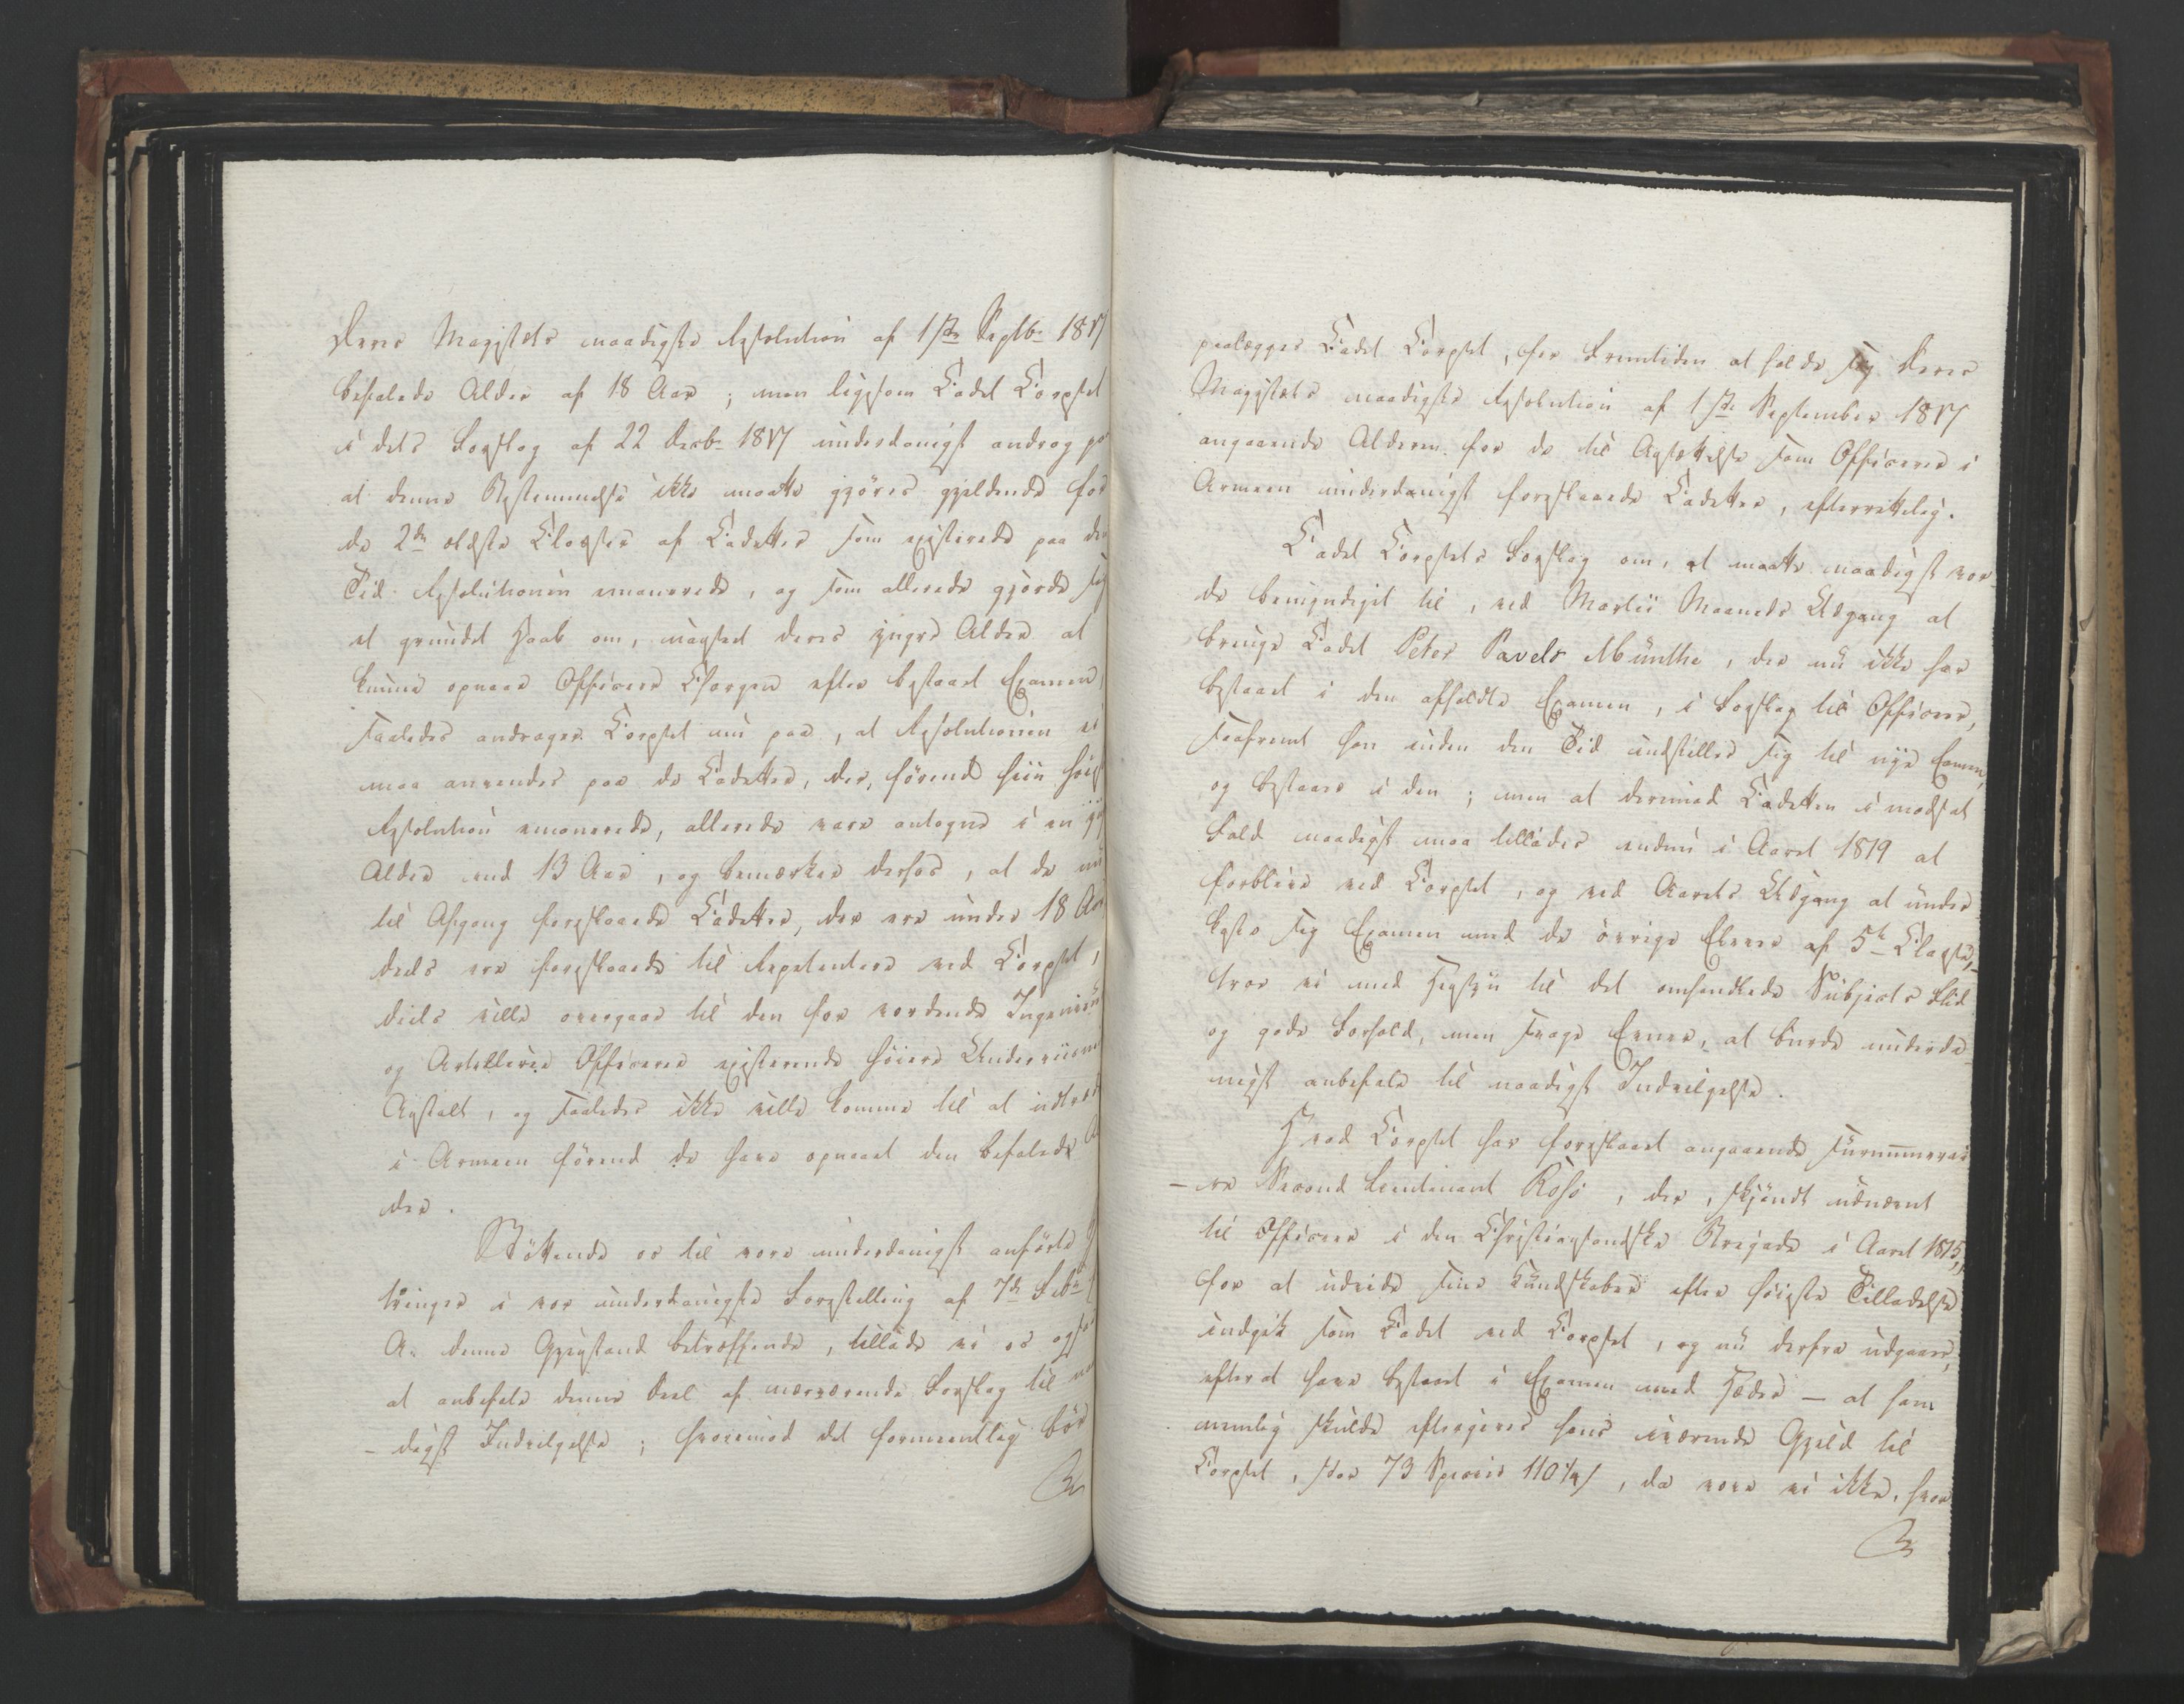 Deres Majestets naadigste Resolution af 1ste Septbr 1817
befalede Alder af 18 Aar; men ligesom Cadet Corpset
i dets Forslag af 22 Decbr 1817 underdanigst androg paa
at denne Bestemmelse ikke maatte gjøres gjeldende for
de 2de ældste Classer af Cadetter som existerede paa den
Tid Resolutionen emanerede, og som allerede gjorde sig
et grundet Haab om, uagtet deres yngre Alder at
kunne opnaae Officeers Chargen efter bestaaet Examen,
saaledes andrager Corpset nu paa, at Resolutionen ei
maa anvendes paa de Cadetter, der, førend hiin høie
Resolution emanerede, allerede vare antagne i en
Alder end 13 Aar, og bemærker derhos, at de nu
til Afgang foreslaaede Cadetter, der ere under 18 Aar
deels ere foreslaaede til Repetentere ved Corpset,
deels ville overgaae til den for vordende Ingenieur
og Artellerie Officerer existerende høiere Underviisnings
Anstalt, og saaledes ikke ville komme til at indtræde
i Armeen førend de have opnaaet den befalede Al
der.
Støttende os til vore underdanigst anførte
tringer i vor underdanigste Forestilling af 7de Febr
A: denne Gjenstand betræffende, tillade vi os ogsaa
at anbefale denne Deel af nærværende Forslag til naa
- digst Indvilgelse; hvorimod det formeentlig bør
paalægges Cadet Corpset, for Fremtiden at holde sig Deres
Majestæts naadigste Resolution af 1ste September 1817
angaaende Alderen for de til Ansættelse som Officerer i
Armeen underdanigst foreslaaede Cadetter, efterrettelig.
Cadet Corpsets Forslag om, at maatte naadigst vor
de bemyndiget til, ved Martii Maaneds Udgang at
bringe Cadet Peter Pavels Münthe, der nu ikke har
bestaaet i den afholdte Examen, i Forslag til Officeer,
saafremt han inden den Tid indstiller sig til nye Examen,
og bestaaer i den; men at derimod Cadetten i modsat
Fald naadigst maa tillades endnu i Aaret 1819 at
forblive ved Corpset, og ved Aarets Udgang at under
kaste sig Examen med de øvrige Elever af 5te Classe,
troe vi med Hensyn til det omhandlede Subjects Flid
og gode Forhold, men svage Evner, at burde underda
nigst anbefale til naadigst Indvilgelse.
Hvad Corpset har foreslaaet angaaende surnumerai
- re Second Lieutenant Rosé, der, skjøndt udnævnt
til Officeer i den Christiansandske Brigade i Aaret 1815,
for at udvide sine Kundskaber efter høieste Tilladelse
indgik som Cadet ved Corpset, og nu derfra udgaaer,
efterat have bestaaet i Examen med Hæder — at ham
nemlig skulde eftergives hans værende Gjeld til
Corpset, stor 73 Species 110¼ s, da vove vi ikke, hvor